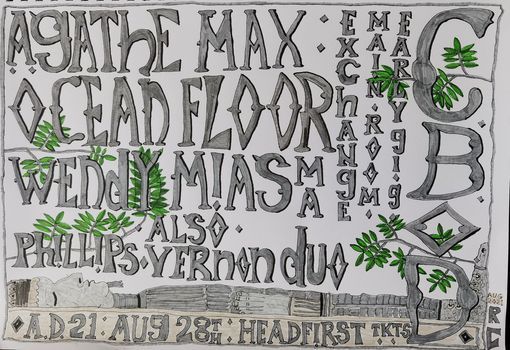 AGATHE MAX ·
OCEAN FLOOR
WENDY · MIASMA
ALSO ·
PHILLIPS · VERNON DUO
EXCHANGE
MAIN · ROOM ·
EARLY gig
CBOD
· A.D 21 · AUG 28TH · HEADFIRST TKTS
AUG 2021
RG